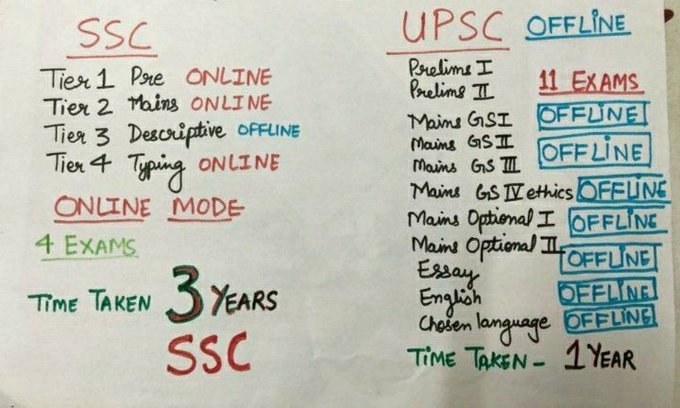 SSC
Tier 1 Pre ONLINE
Tier 2 Mains ONLINE
Tier 3 Descriptive OFFLINE
Tier 4 Typing ONLINE
ONLINE MODE
4 EXAMS
TIME TAKEN 3 YEARS
SSC
UPSC OFFLINE
Prelims I
Prelims II
11 EXAMS
Mains GSI OFFLINE
Mains GS II
Mains GS III OFFLINE
Mains GS IV ethics OFFLINE
Mains Optional I OFFLINE
Mains Optional II OFFLINE
Essay
English OFFLINE
Chosen language OFFLINE
TIME TAKEN - 1 YEAR